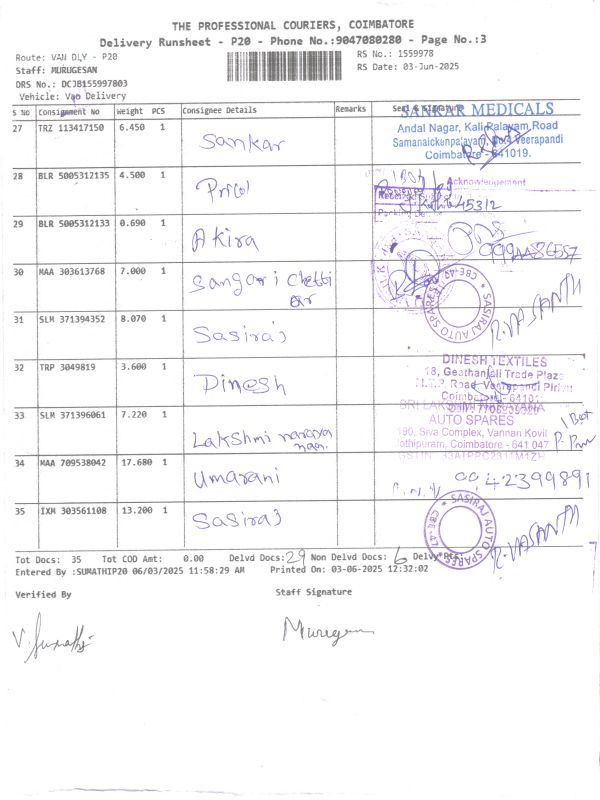 THE PROFESSIONAL COURIERS, COIMBATORE
Delivery Runsheet - P20 - Phone No.:9047080280 - Page No.:3
Route: VAN DLY - P20
RS No.: 1559978
Staff: MURUGESAN
RS Date: 03-Jun-2025
DRS No.: DCJB155997803
Vehicle: Van Delivery
S NO Consignment No Weight PCS Consignee Details Remarks Seal & Signature
SANKAR MEDICALS
27 TRZ 113417150 6.450 1 Sankar
Andal Nagar, Kali Palayam Road
Samanaickenpalayam, Veerapandi
Coimbatore - 641019.
28 BLR 5005312135 4.500 1 Pricol
Acknowledgement
45312
29 BLR 5005312133 0.690 1 Akira
30 MAA 303613768 7.000 1 Sangari Chetti
ar
SASIRAJ AUTO SPARES
31 SLM 371394352 8.070 1 Sasiraj
R. VASANTH
32 TRP 3049819 3.600 1 Dinesh
DINESH TEXTILES
18, Geethanjali Trade Plaza
M.T.P. Road,
33 SLM 371396061 7.220 1 Lakshmi narayanan
AUTO SPARES
190, Siva Complex, Vannan Kovil
Jothipuram, Coimbatore - 641 047
34 MAA 709538042 17.680 1 Umarani
42399891
35 IXM 303561108 13.200 1 Sasiraj
SASIRAJ AUTO SPARES
R. VASANTH
Tot Docs: 35 Tot COD Amt: 0.00 Delvd Docs: 29 Non Delvd Docs: 6 Delvy Pts:
Entered By :SUMATHIP20 06/03/2025 11:58:29 AM Printed On: 03-06-2025 12:32:02
Verified By
Staff Signature
V. Sumathi
Murugesan